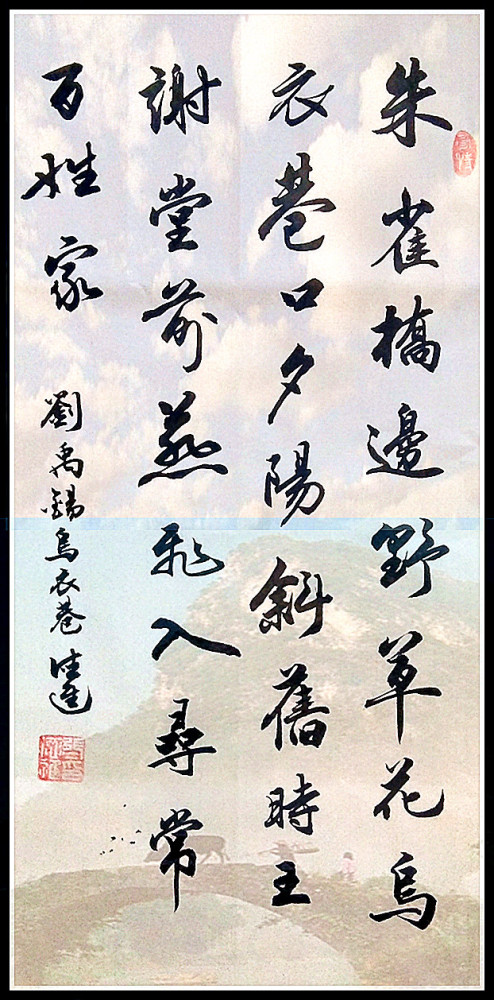 朱雀橋邊野草花烏
衣巷口夕陽斜舊時王
謝堂前燕飛入尋常
百姓家
劉禹錫烏衣巷